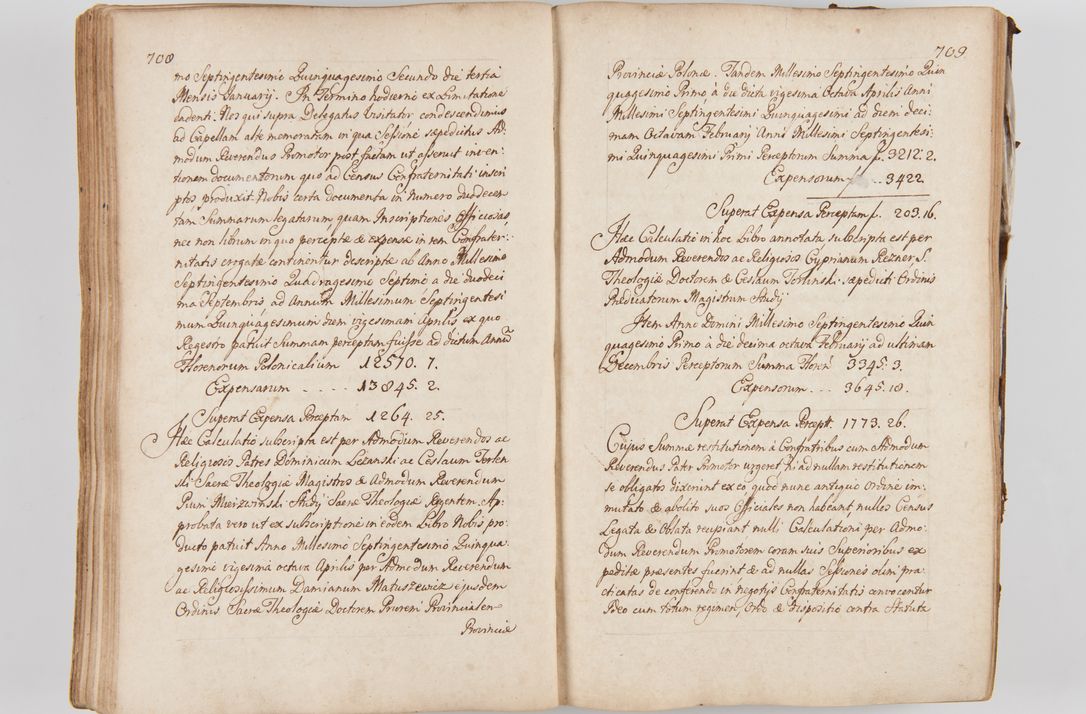 708
mo Septingentesimo Quinquagesimo Secundo die tertia
Mensis Januarij. In Termino hodierno ex Limitatione
cadenti. Nos qui supra Delegatus Visitator condescendimus
ad Capellam alte memoratam in qua Sessione sæpedictus Ad-
modum Reverendus Promotor post factam ut asseruit inven-
tionem documentorum quo ad Census Confraternitati inscri
ptos produxit Nobis certa documenta in Numero duodecem
tam Summarum legatarum, quam Inscriptiones Officiosas,
nec non librum in quo perceptæ & expensæ in rem Confrater-
nitatis erogatæ continentur descriptæ ab Anno Millesimo
Septingentesimo Quadragesimo Septimo a die duodeci
ma Septembris ad Annum Millesimum Septingentesi
mum Quinquagesimum diem vigesimam Aprilis ex quo
Regestro patuit Summam perceptam fuisse ad dictum Annũ
Florenorum Polonicalium 12570. 7.
Expensarum - - - - 13845. 2.
Superat Expensa Perceptam 1264. 25.
Hæc Calculatio subscripta est per Admodum Reverendos ac
Religiosos Patres Dominicum Lezanski ac Ceslaum Torlen
ski Sacræ Theologiæ Magistros & Admodum Reverendum
Pium Mierzwinski Studij Sacræ Theologiæ Regentem. Ap-
probata vero ut ex subscriptione in eodem Libro Nobis pro-
ducto patuit Anno Millesimo Septingentesimo Quinqua-
gesimo vigesima octava Aprilis per Admodum Reverendum
ac Religiosissimum Damianum Matuszewicz ejusdem
Ordinis Sacræ Theologiæ Doctorem Priorem Provincialem
Provinciæ
709
Provinciæ Polonæ. Tandem Millesimo Septingentesimo Quin
quagesimo Primo à die dicta vigesima Octava Aprilis Anni
Millesimi Septingentesimi Quinquagesimi ad diem deci-
mam Octavam Februarij Anni Millesimi Septingentesi-
mi Quinquagesimi Primi Perceptorum Summa f. 3212. 2.
Expensorum f. .. 3422.
Superat Expensa Perceptam f. 209. 16.
Hæc Calculatio in hoc Libro annotata subscripta est per
Admodum Reverendos ac Religiosos Cyprianum Rezner S.
Theologiæ Doctorem & Ceslaum Torlinski sæpedicti Ordinis
Prædicatorum Magistrum Studij
Item Anno Domini Millesimo Septingentesimo Quin
quagesimo Primo à die decima octava Februarij ad ultimam
Decembris Perceptorum Summa Floren̄ 3345. 3.
Expensorum . . . 3645. 18.
Superat Expensa Percept. 1773. 26.
Cujus Summæ restitutionem à Confratribus cum Admodum
Reverendus Pater Promotor urgeret, hi ad nullam restitutionem
se obligatos dixerunt ex eo quod nunc antiquo Ordine im-
mutato & abolito suos Officiales non habeant, nullos Census
Legata & Oblata recipiant nulli Calculationi per Admo-
dum Reverendum Promotorem coram suis Superioribus ex
peditæ præsentes fuerint & ad nullas Sessiones olim pra-
cticatas de conferendo in negotijs Confraternitatis convocentur
Ideo cum totum regimen, Ordo & Dispositio contra Statuta